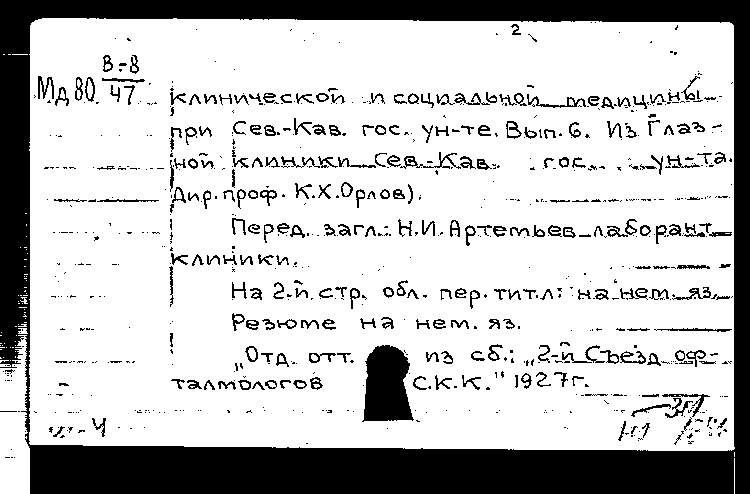 2
В-8
Мд80 47
клинической и социальной медицины
при Сев.-Кав. гос. ун-те. Вып. 6. Из Глаз-
ной клиники Сев.-Кав. гос. ун-та.
Дир. проф. К.Х.Орлов).
Перед. загл.: Н.И. Артемьев лаборант
клиники.
На 2-й стр. обл. пер. тит. л: на нем. яз.
Резюме на нем. яз.
„Отд. отт. из сб.: „2-й Съезд оф-
талмологов С.К.К." 1927г.